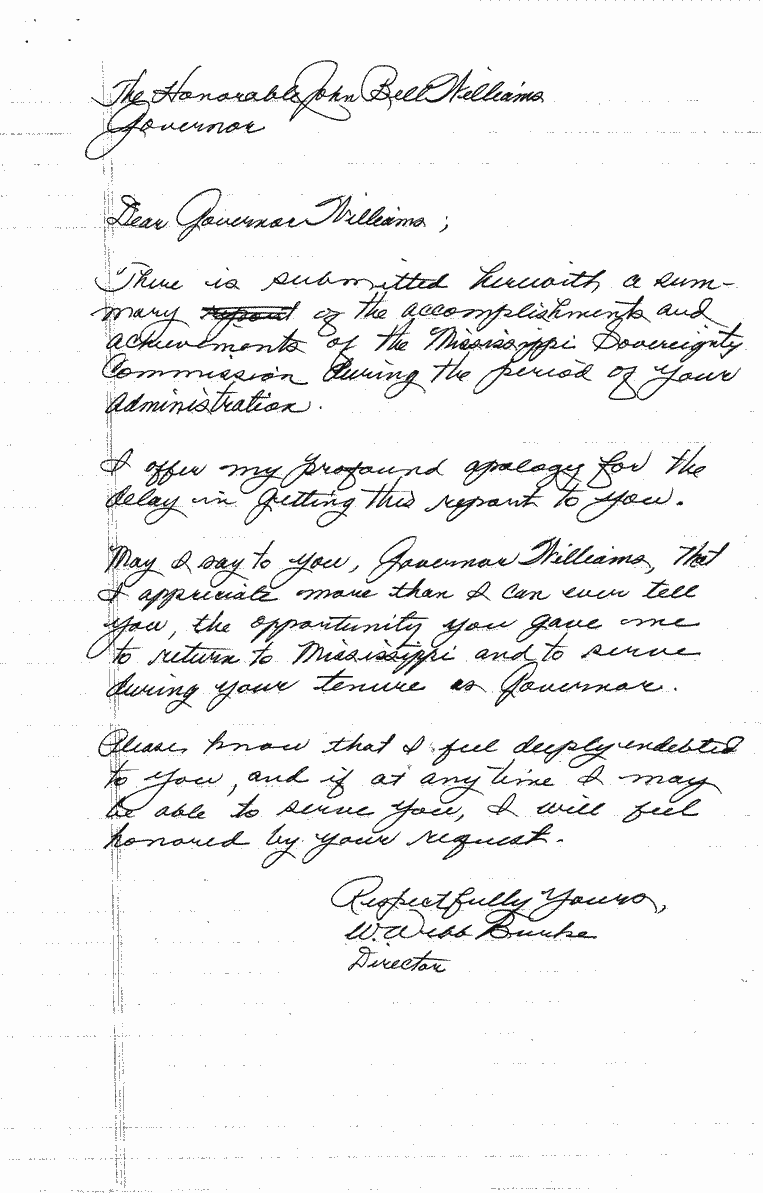 The Honorable John Bell Williams
Governor
Dear Governor Williams;
There is submitted herewith a sum-
mary report of the accomplishments and
achievements of the Mississippi Sovereignty
Commission during the period of your
administration.
I offer my profound apology for the
delay in getting this report to you.
May I say to you, Governor Williams, that
I appreciate more than I can ever tell
you, the opportunity you gave me
to return to Mississippi and to serve
during your tenure as Governor.
Please know that I feel deeply endebted
to you, and if at any time I may
be able to serve you, I will feel
honored by your request.
Respectfully Yours,
W. Webb Burke
Director